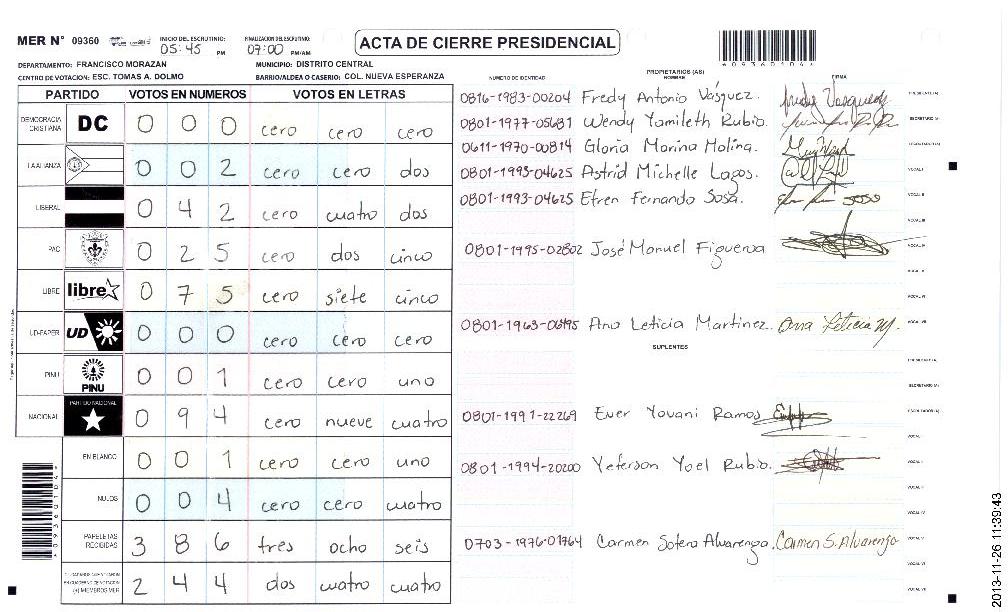 MER N° 09360 INICIO DEL ESCRUTINIO: 05:45 PM FINALIZACION ESCRUTINIO: 07:00 PM/AM ACTA DE CIERRE PRESIDENCIAL
DEPARTAMENTO: FRANCISCO MORAZAN MUNICIPIO: DISTRITO CENTRAL
CENTRO DE VOTACION: ESC. TOMAS A. DOLMO BARRIO/ALDEA O CASERIO: COL. NUEVA ESPERANZA
PARTIDO VOTOS EN NUMEROS VOTOS EN LETRAS
DEMOCRACIA CRISTIANA DC 0 0 0 cero cero cero
LA ALIANZA 0 0 2 cero cero dos
LIBERAL 0 4 2 cero cuatro dos
PAC 0 2 5 cero dos cinco
LIBRE libre 0 7 5 cero siete cinco
UD-FAPER UD 0 0 0 cero cero cero
PINU PINU 0 0 1 cero cero uno
NACIONAL PARTIDO NACIONAL 0 9 4 cero nueve cuatro
EN BLANCO 0 0 1 cero cero uno
NULOS 0 0 4 cero cero cuatro
PAPELETAS RECIBIDAS 3 8 6 tres ocho seis
2 4 4 dos cuatro cuatro
NUMERO DE IDENTIDAD PROPIETARIOS (AS) NOMBRE FIRMA
0816-1983-00204 Fredy Antonio Vásquez. PRESIDENTE (A)
0801-1977-05681 Wendy Yamileth Rubio. SECRETARIO (A)
0611-1970-00814 Gloria Marina Molina. ESCRUTADOR (A)
0801-1993-04625 Astrid Michelle Lagos. VOCAL I
0801-1993-04625 Efren Fernando Sosa. VOCAL II
VOCAL III
0801-1995-02802 José Manuel Figueroa VOCAL IV
VOCAL V
VOCAL VI
0801-1963-06495 Ana Leticia Martinez. Ana Leticia M. VOCAL VII
SUPLENTES
PRESIDENTE (A)
SECRETARIO (A)
0801-1991-22269 Ever Yovani Ramos ESCRUTADOR (A)
VOCAL I
0801-1994-20200 Yeferson Yoel Rubio. VOCAL II
VOCAL III
VOCAL IV
0703-1976-01764 Carmen Sotera Alvarenga. Carmen S. Alvarenga VOCAL V
VOCAL VI
VOCAL VII
2013-11-26 11:39:43